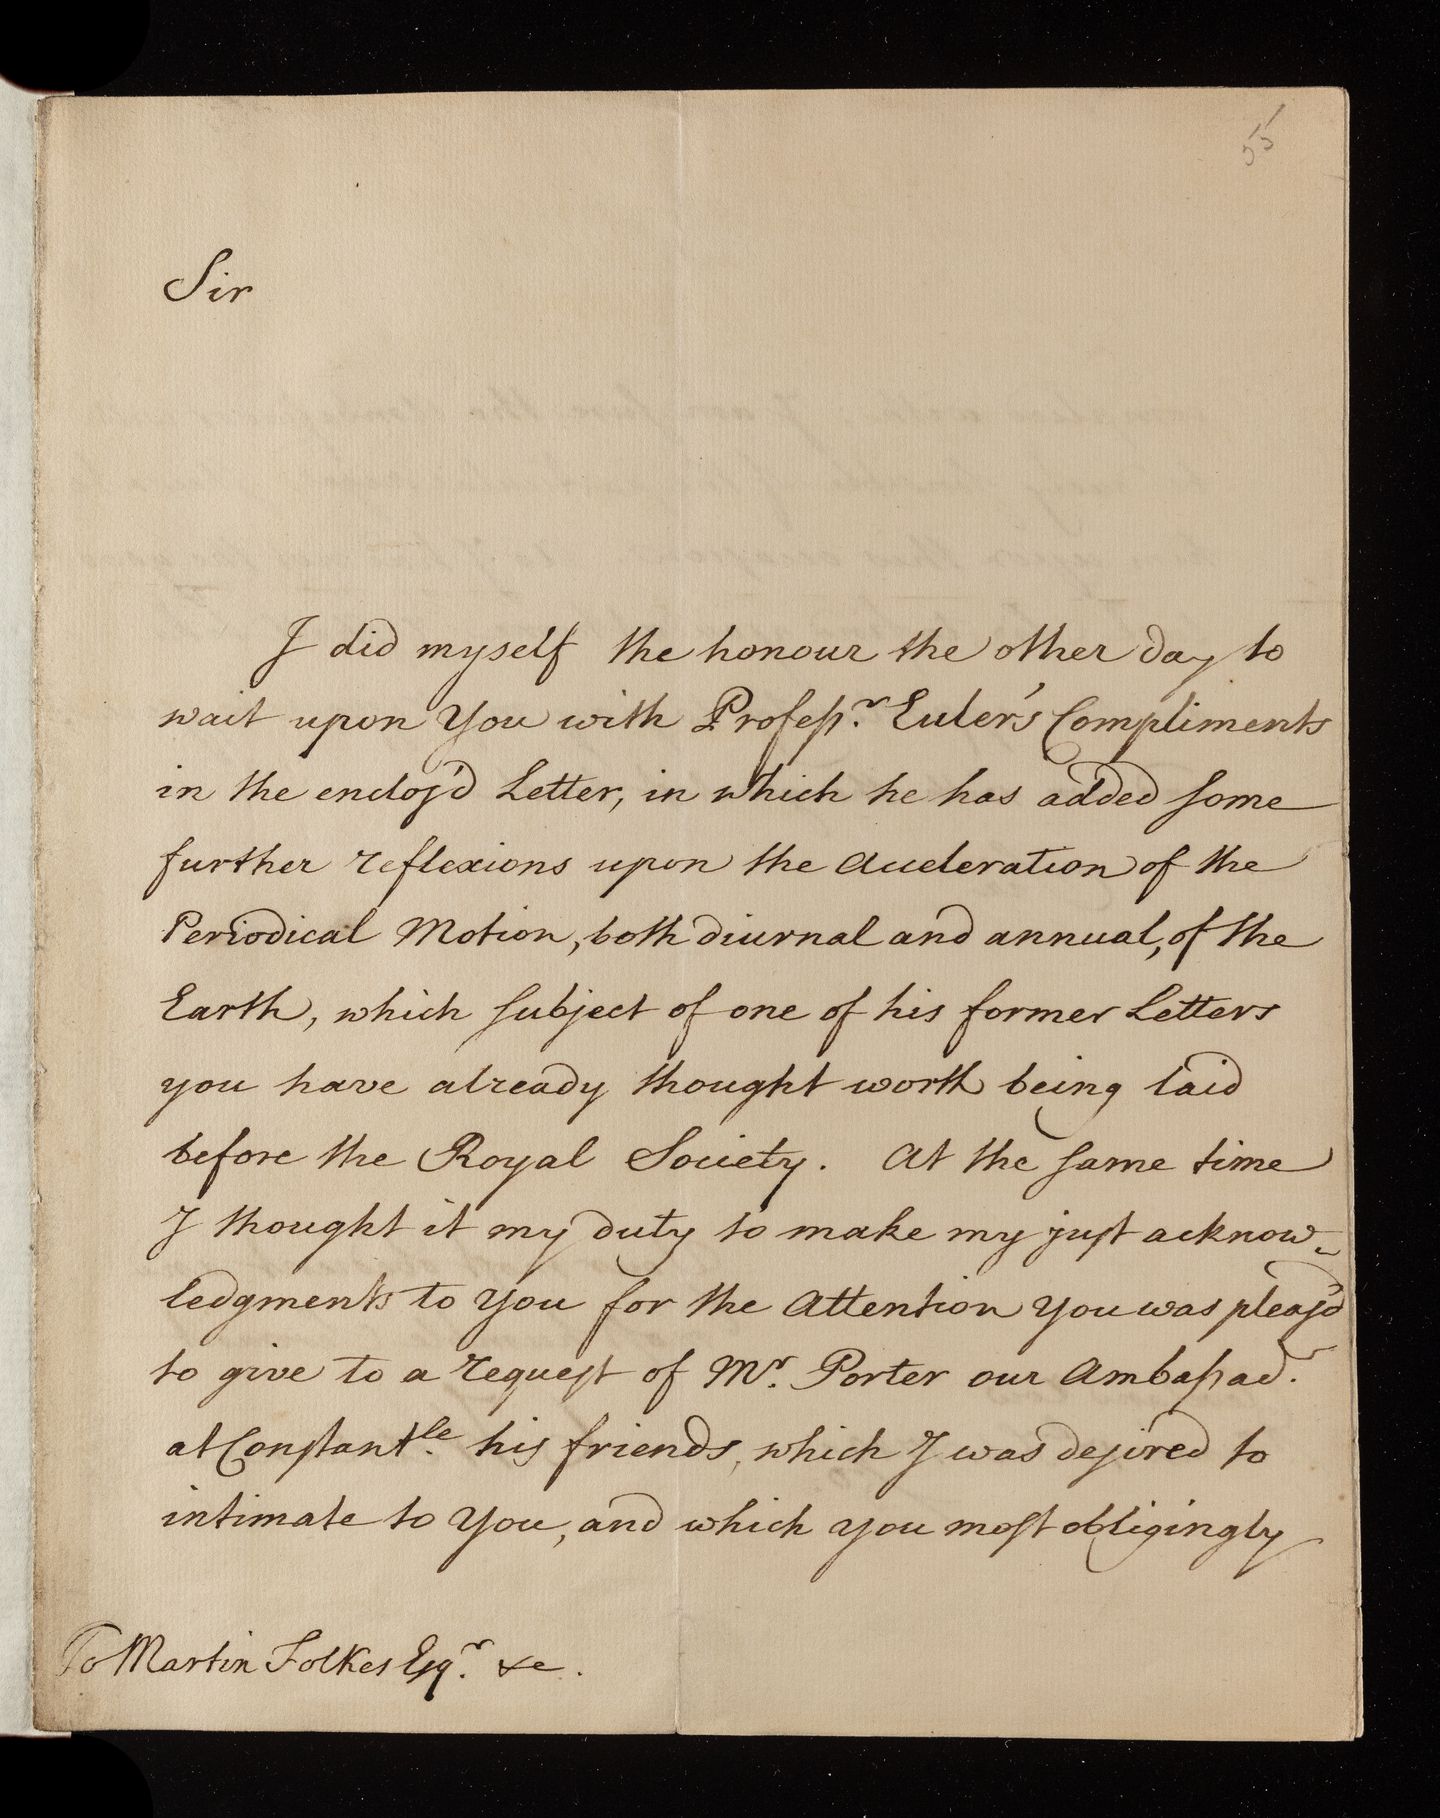 55
Sir
I did myself the honour the other day to
wait upon You with Profeſsr. Euler's Compliments
in the encloſ'd Letter, in which he has added ſome
further reflexions upon the Acceleration of the
Periodical Motion, both diurnal and annual, of the
Earth, which ſubject of one of his former Letters
you have already thought worth being laid
before the Royal Society. At the ſame time
I thought it my duty to make my juſt acknow-
ledgments to You for the Attention You was pleaſ'd
to give to a requeſt of Mr. Porter our Ambaſsadr.
at Conſtantle. hiſ friends, which I was deſired to
intimate to You, and which You moſt obligingly
To Martin Folkes Eſqr. &c.